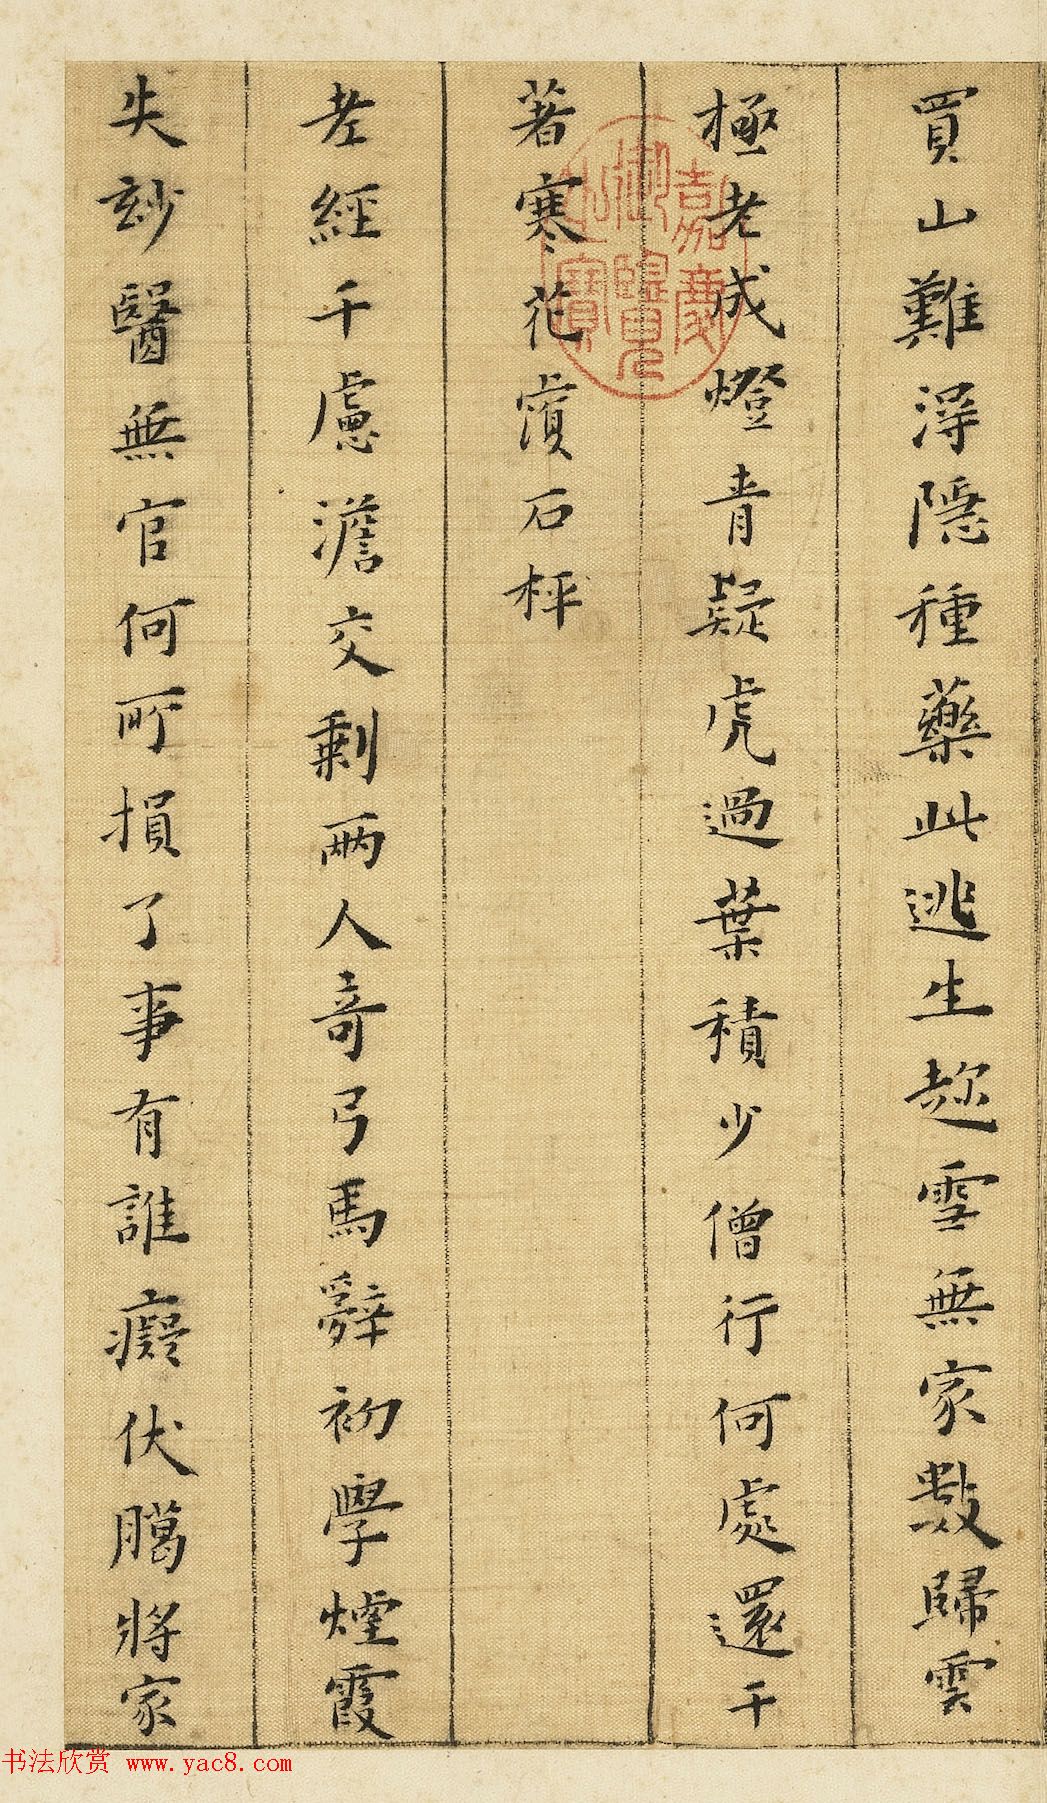 買山難淂隐種藥此逃生趂雪無家數歸雲
極老成燈青疑虎過葉積少僧行何處還干
著寒花濵石枰
老經千慮澹交剩兩人奇弓馬辭初學煙霞
失玅醫無官何所損了事有誰癡伏臈將家
嘉慶御覽之寶
书法欣赏 www.yac8.com